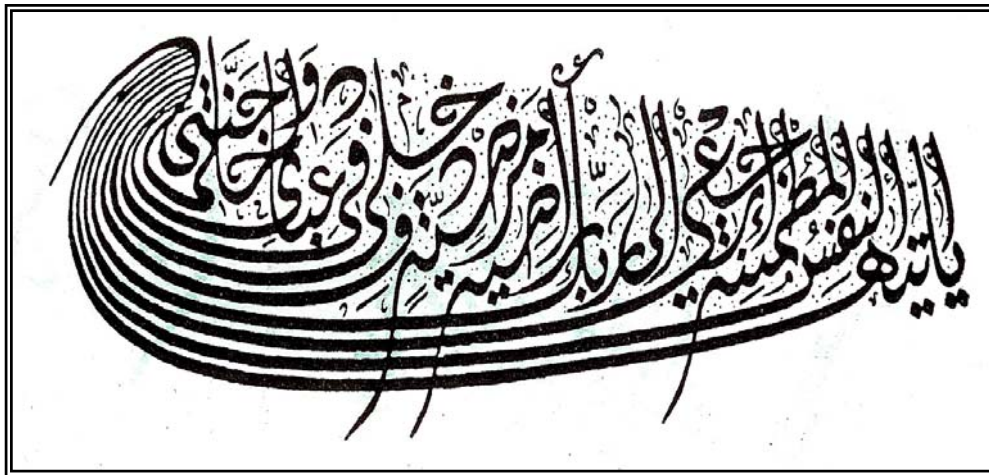 يا أيتها النفس المطمئنة ارجعي إلى ربك راضية مرضية فادخلي في عبادي وادخلي جنتي